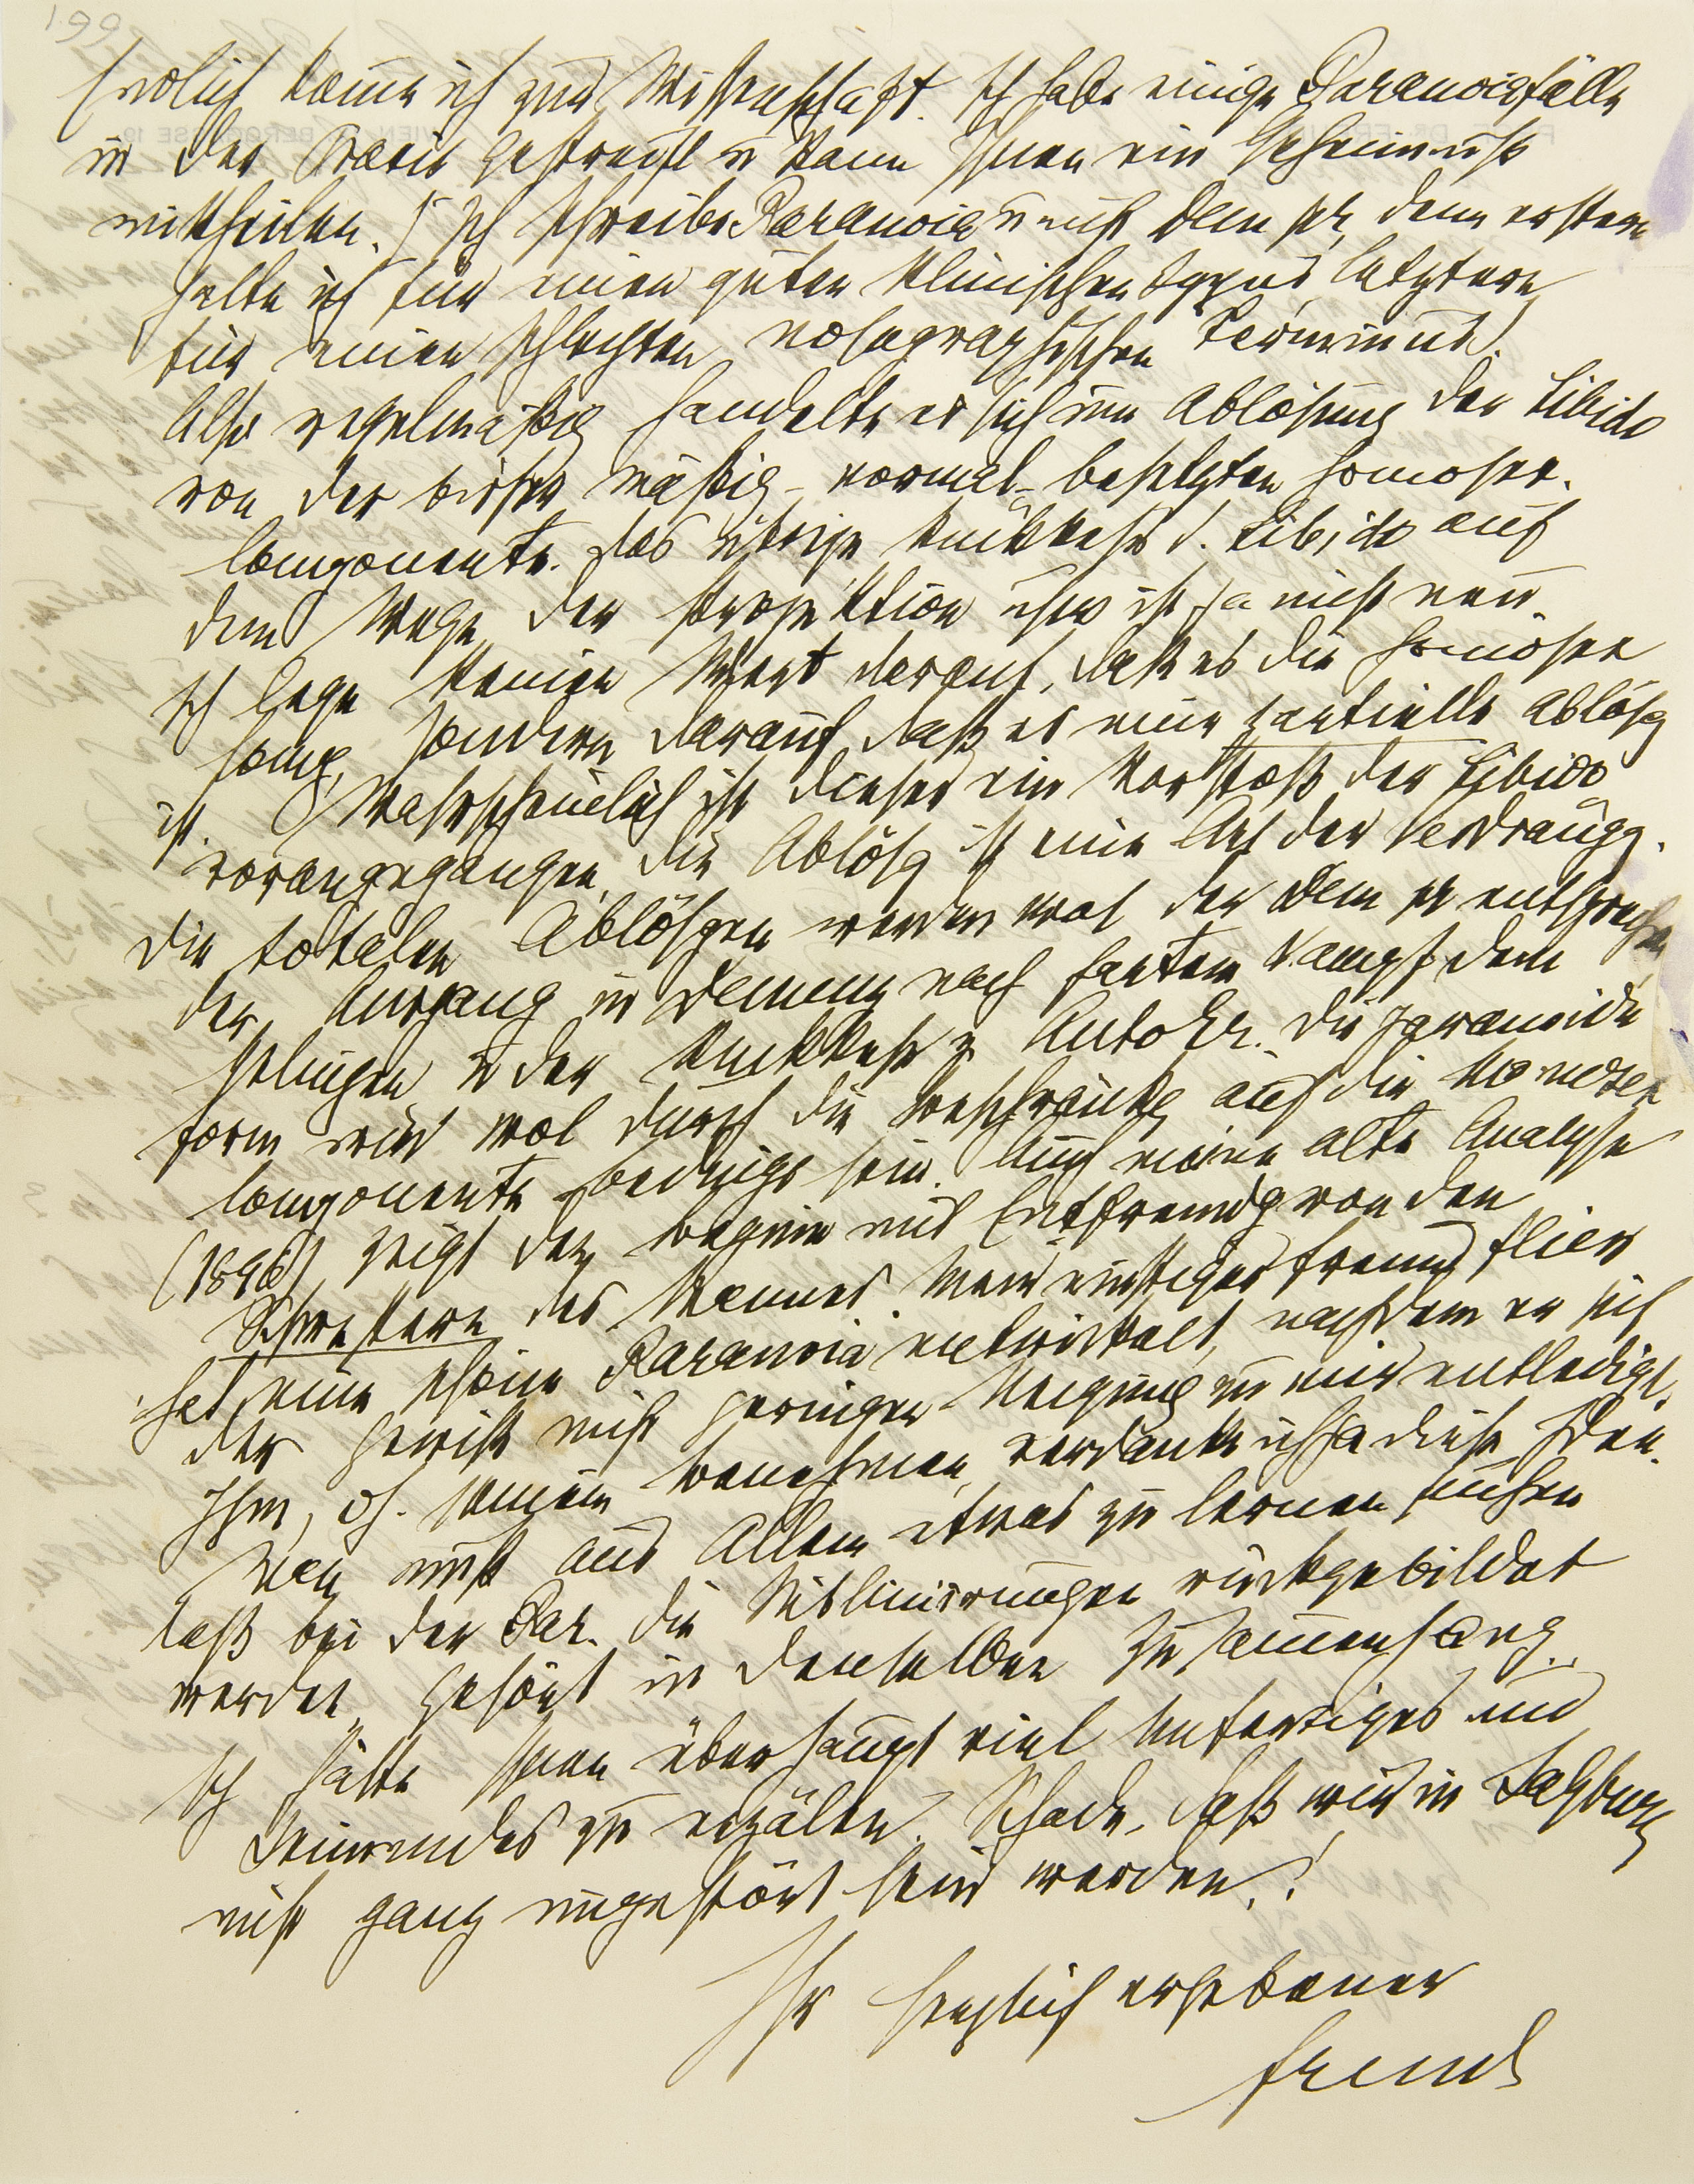 199
Endlich komme ich zur Wissenschaft. Ich habe einige Paranoiafälle
in der Praxis gestreift u kann Ihnen ein Geheimniß
mittheilen. (Ich schreibe Paranoia u nicht Dem pr, denn erstere
halte ich für einen guten klinischen Typus, letztere
für einen schlechten nosographischen Terminus).
Also regelmäßig handelte es sich um Ablösung der Libido
von der bisher mäßig-normal-besetzten homosex.
Componente. Das übrige Rückkehr d. Libido auf
dem Wege der Projektion usw ist ja nicht neu.
Ich lege keinen Wert darauf, daß es die homosex
Comp, sondern darauf daß es eine partielle Ablösg
ist. Wahrscheinlich ist dieser ein Vorstoß der Libido
vorangegangen, die Ablösg ist eine Art der Verdrängg.
Die totalen Ablösgen werden wol der Dem pr entsprechen,
der Ausgang in Demenz nach hartem Kampf dem
Gelingen u der Rückkehr z AutoEr. Die paranoide
Form wird wol durch die Beschränkg auf die homosex
Componente bedingt sein. Auch meine alte Analyse
(1896) zeigt den Beginn mit Entfremdg von den
Schwestern des Mannes. Mein einstiger Freund Fließ
hat eine schöne Paranoia entwickelt, nachdem er sich
der gewiß nicht geringen Neigung zu mir entledigt.
Ihm, dh. seinem Benehmen, verdanke ich ja diese Idee.
Man muß aus Allem etwas zu lernen suchen
Daß bei der Par. die Sublimirungen rückgebildet
werden, gehört in denselben Zusammenhang.
Ich hätte Ihnen überhaupt viel Unfertiges und
Keimendes zu erzälen. Schade, daß wir in Salzburg
nicht ganz ungestört sein werden!
Ihr herzlich ergebener
Freud